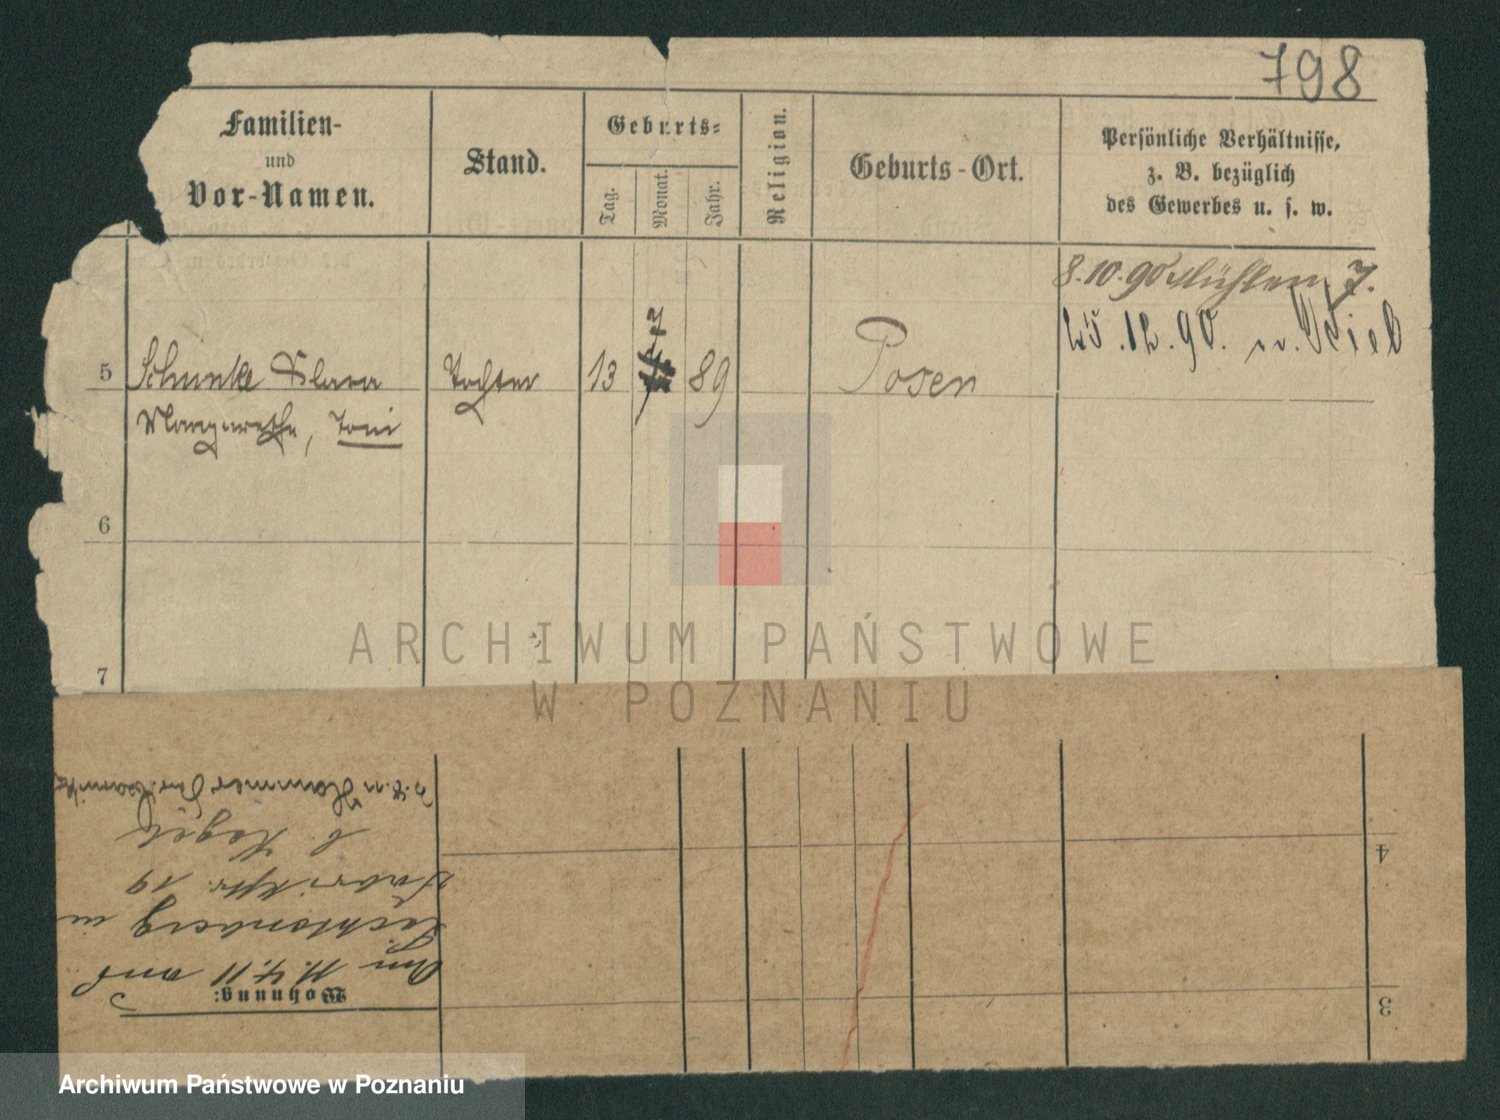 798
Familien-
und
Vor-Namen.
Stand.
Geburts-
Tag.
Monat.
Jahr.
Religion.
Geburts-Ort.
Persönliche Verhältnisse,
z. B. bezüglich
des Gewerbes u. s. w.
8.10.90 Mühlen 7.
25.12.90. n. Kiel
5 Schunke Clara Tochter 13 7 89 Posen
Margarethe, Toni
6
7
ARCHIWUM PAŃSTWOWE
W POZNANIU
Wohnung:
Am 11.4.11 aus
in
19
b. Hagel
4
3
Archiwum Państwowe w Poznaniu